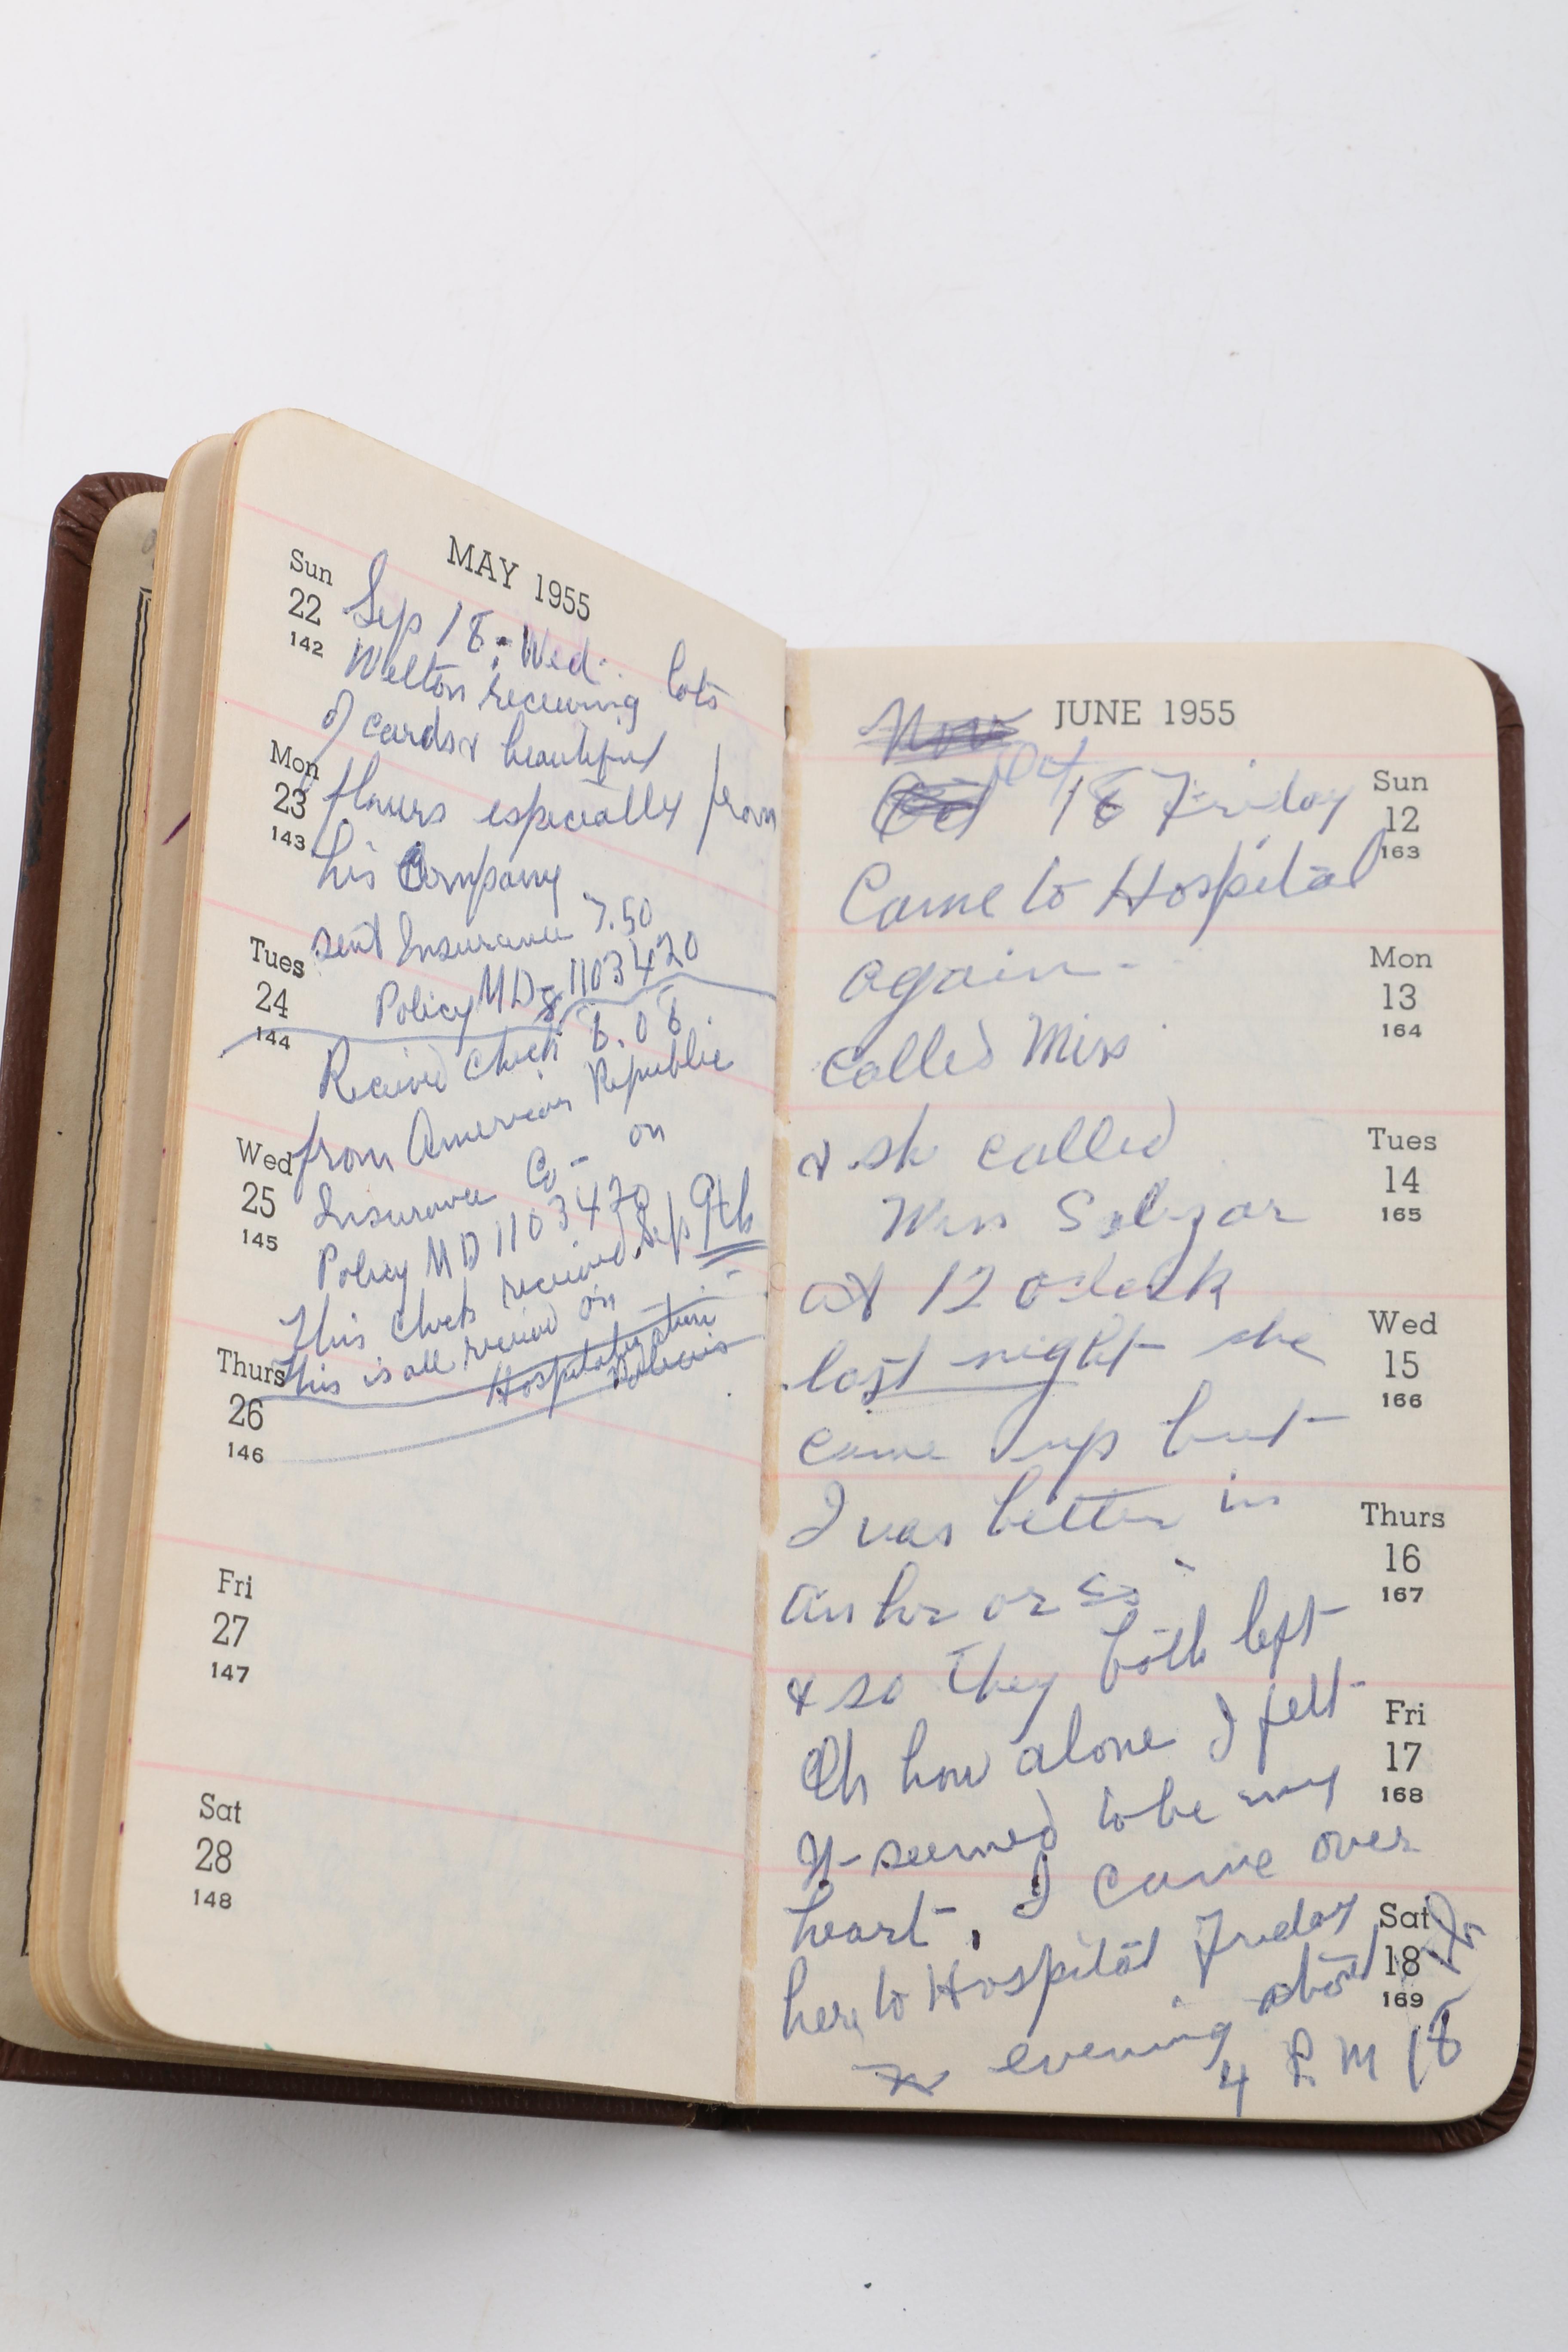 MAY 1955
Sun
22
142
Sep 18, Wed.
Welton receiving lots
of cards & beautiful
Mon
23
143
flowers especially from
his Company
sent Insurance 7.50
Tues
24
144
Policy MD 1103420
Received Check 8.08
from American Republic
Wed
25
145
Insurance Co - on
Policy MD 1103420
This Check received Sep 9th
This is all received on
Hospitalization
Policies
Thurs
26
146
Fri
27
147
Sat
28
148
JUNE 1955
Nov
Oct Oct 18 Friday
Sun
12
163
Came to Hospital
again - -
Mon
13
164
called Miss
& sh called
Tues
14
165
Miss
at 12 oclock
last night she
Wed
15
166
came up but
I was better in
Thurs
16
167
an hr or so
& so they both left
Oh how alone I felt
Fri
17
168
It seemed to be my
heart. I came over
here to Hospital Friday
Sat
18
169
evening about
4 P M 18